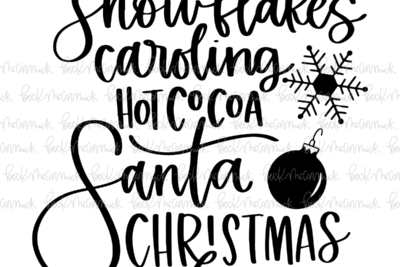 Snowflakes
caroling
HOT COCOA
Santa
CHRISTMAS